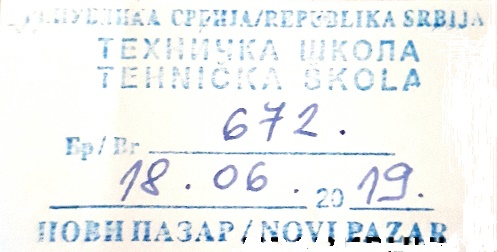 РЕПУБЛИКА СРБИЈА/REPUBLIKA SRBIJA
ТЕХНИЧКА ШКОЛА
TEHNIČKA ŠKOLA
Бр/Br 672.
18.06.2019.
НОВИ ПАЗАР/NOVI PAZAR